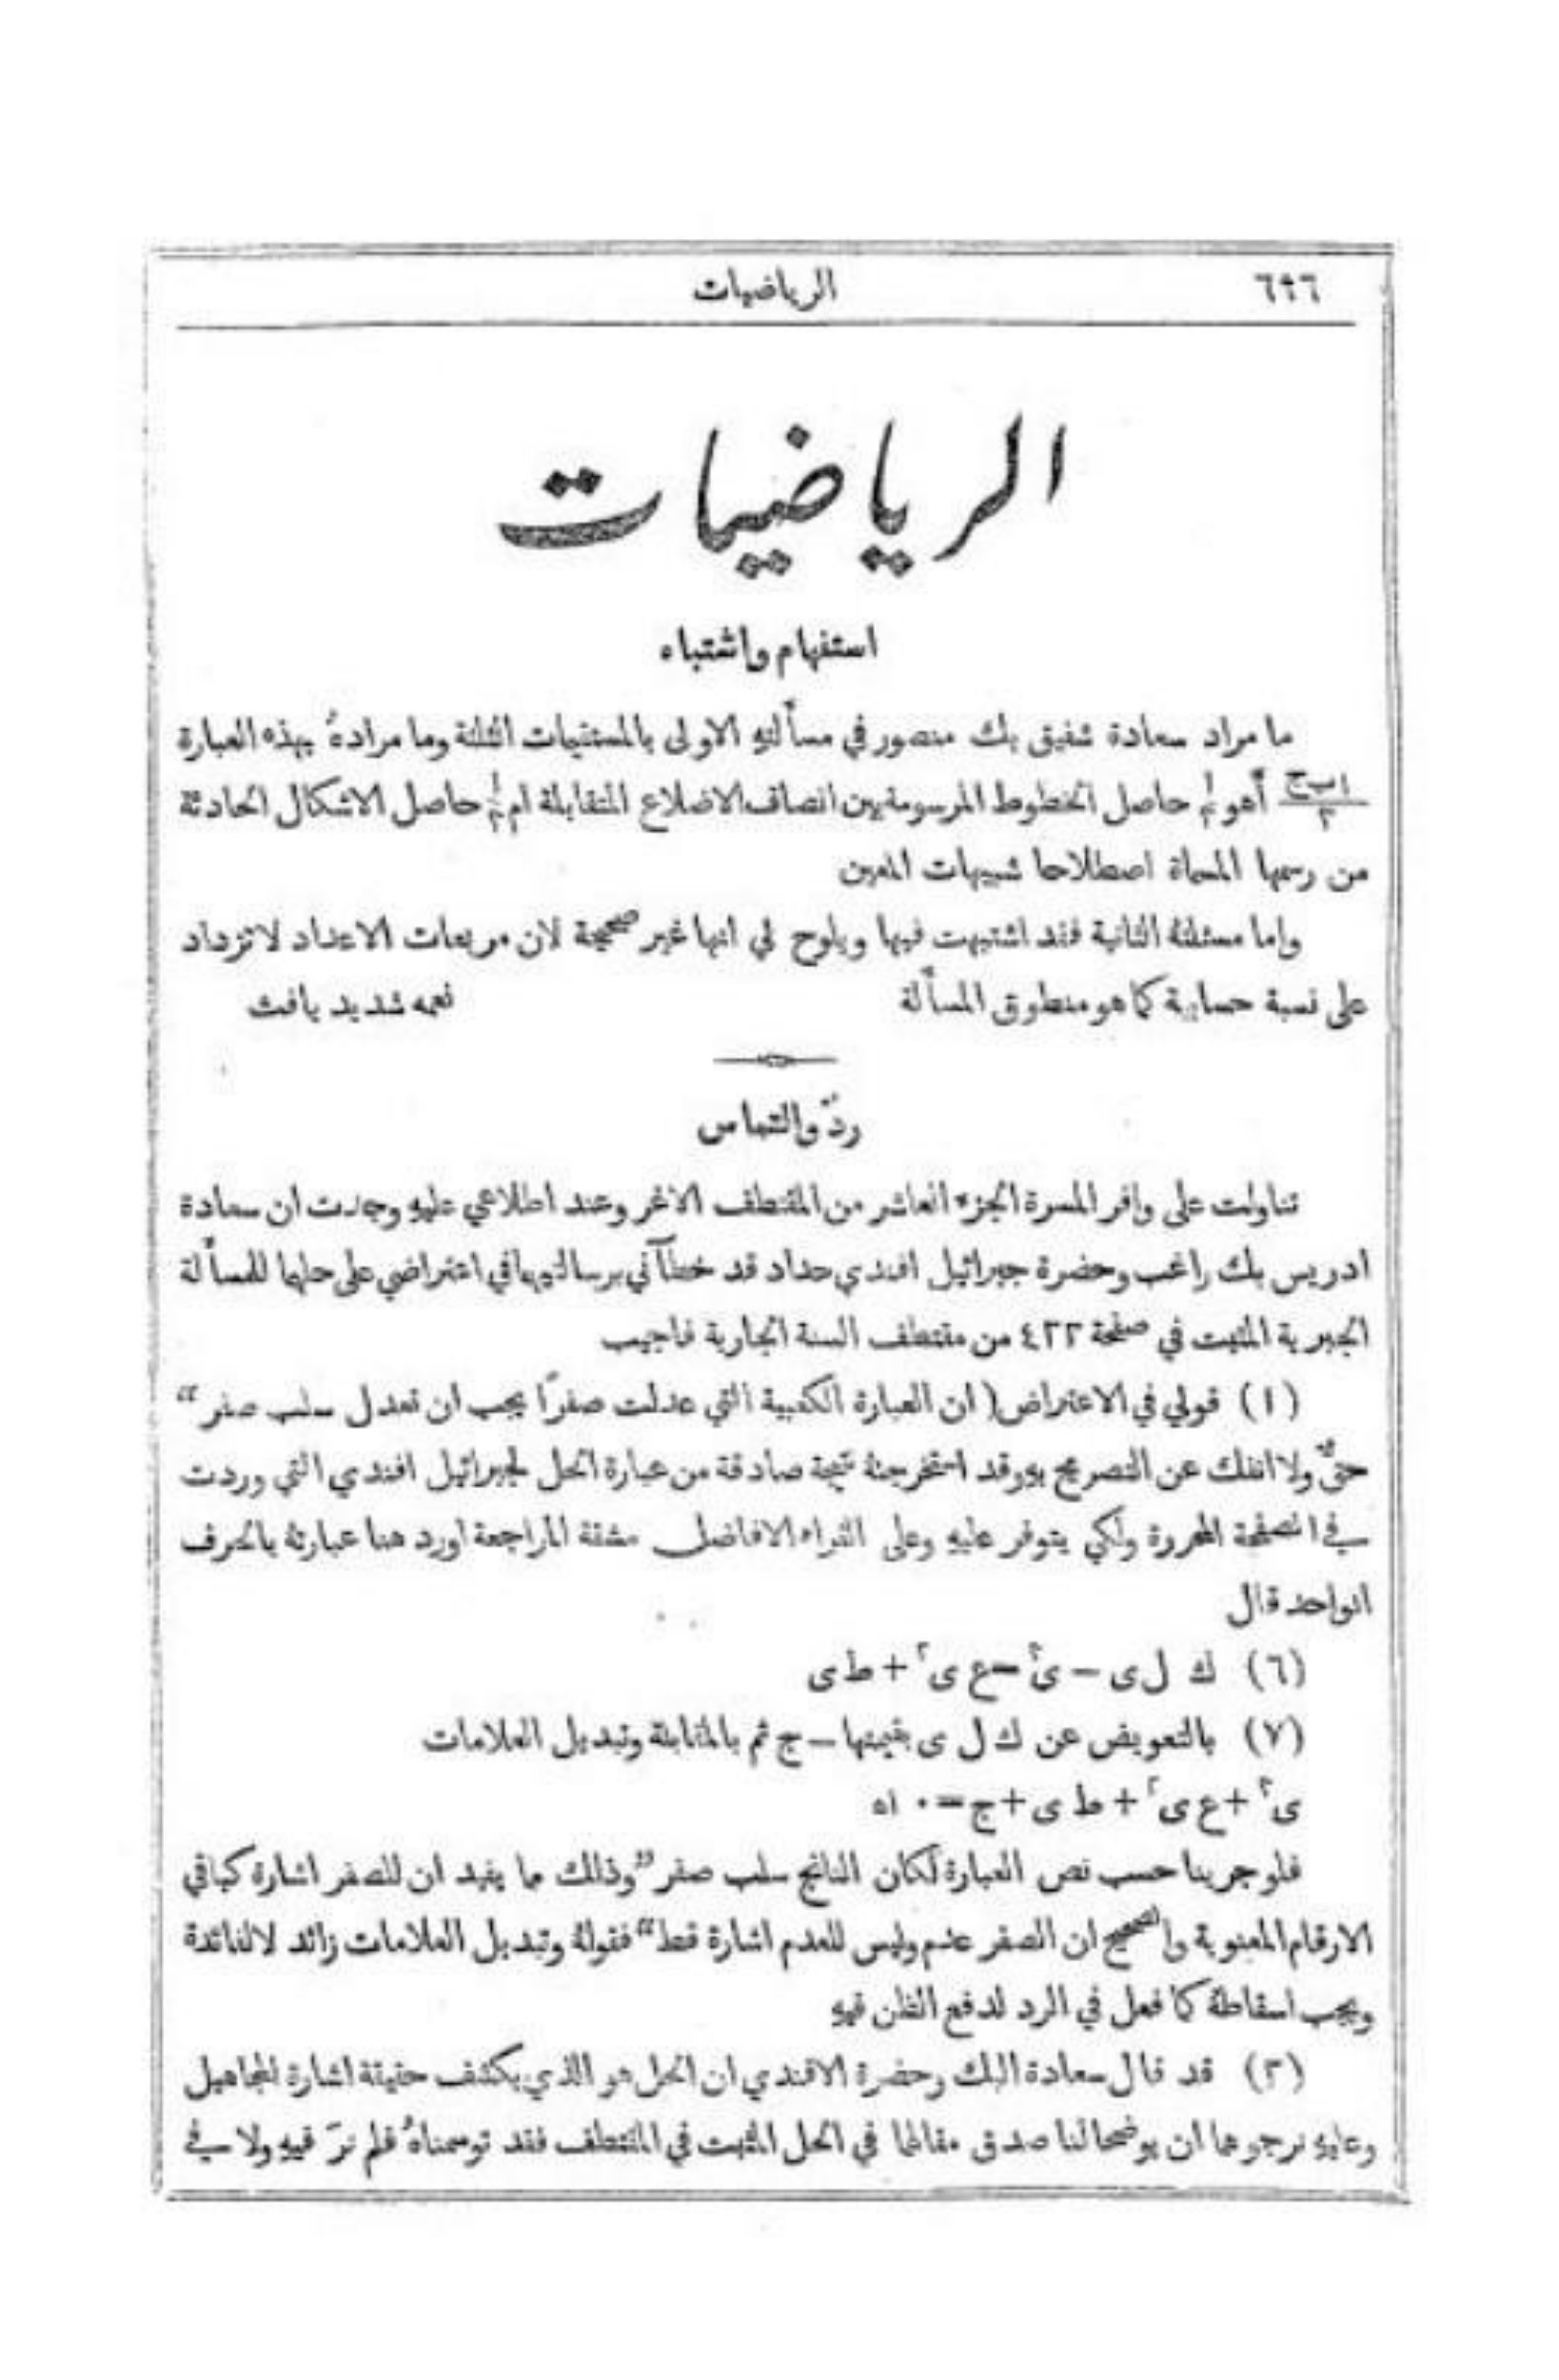 ٦٩٦ الرياضيات
الرياضيات
استفهام واشتباه
ما مراد سعادة شفيق بك منصور في مسألتهِ الاولى بالمستقيمات الثلثة وما مرادهُ بهذه العبارة
ا ب ج / ٢ أهو ١/٢ حاصل الخطوط المرسومة بين انصاف الاضلاع المتقابلة ام ١/٢ حاصل الاشكال الحادثة
من رسمها المسماة اصطلاحا شبيهات المعين
واما مسئلتهُ الثانية فقد اشتبهت فيها ويلوح لي انها غير صحيحة لان مربعات الاعداد لا تزداد
على نسبة حسابية كما هو منطوق المسألة نعمه شديد يافث
ردّ والتماس
تناولت على وافر المسرة الجزء العاشر من المقتطف الاغر وعند اطلاعي عليهِ وجدت ان سعادة
ادريس بك راغب وحضرة جبرائيل افندي حداد قد خطآني برسالتيهما في اعتراضي على حلهما للمسألة
الجبرية المثبت في صفحة ٤٢٢ من مقتطف السنة الجارية فاجيب
(١) قولي في الاعتراض (ان العبارة الكعبية التي عدلت صفرًا يجب ان تعدل سلب صفر“
حقٌّ ولا انفك عن التصريح بهِ وقد استخرجتهُ نتيجة صادقة من عبارة الحل لجبرائيل افندي التي وردت
في الصفحة المحررة ولكي يتوفر عليهِ وعلى القراء الافاضل مشقة المراجعة اورد هنا عبارتهُ بالحرف
الواحد قال
(٦) ك ل ى − ى٣ = ع ى٢ + ط ى
(٧) بالتعويض عن ك ل ى بقيمتها − ج ثم بالمقابلة وتبديل العلامات
ى٣ + ع ى٢ + ط ى + ج = ٠ اه
فلو جرينا حسب نص العبارة لكان الناتج سلب صفر ”وذلك مما يفيد ان للصفر اشارة كباقي
الارقام المعنوية والصحيح ان الصفر عدم وليس للعدم اشارة قط“ فقولهُ وتبديل العلامات زائد لا فائدة
ويجب اسقاطهُ كما فعل في الرد لدفع الظن فيهِ
(٢) قد قال سعادة البك وحضرة الافندي ان الحل هو الذي يكشف حقيقة اشارة المجاهيل
وعليهِ نرجوهما ان يوضحا لنا صدق مقالهما في الحل المثبت في المقتطف فقد توسمناهُ فلم نرَ فيهِ ولا في